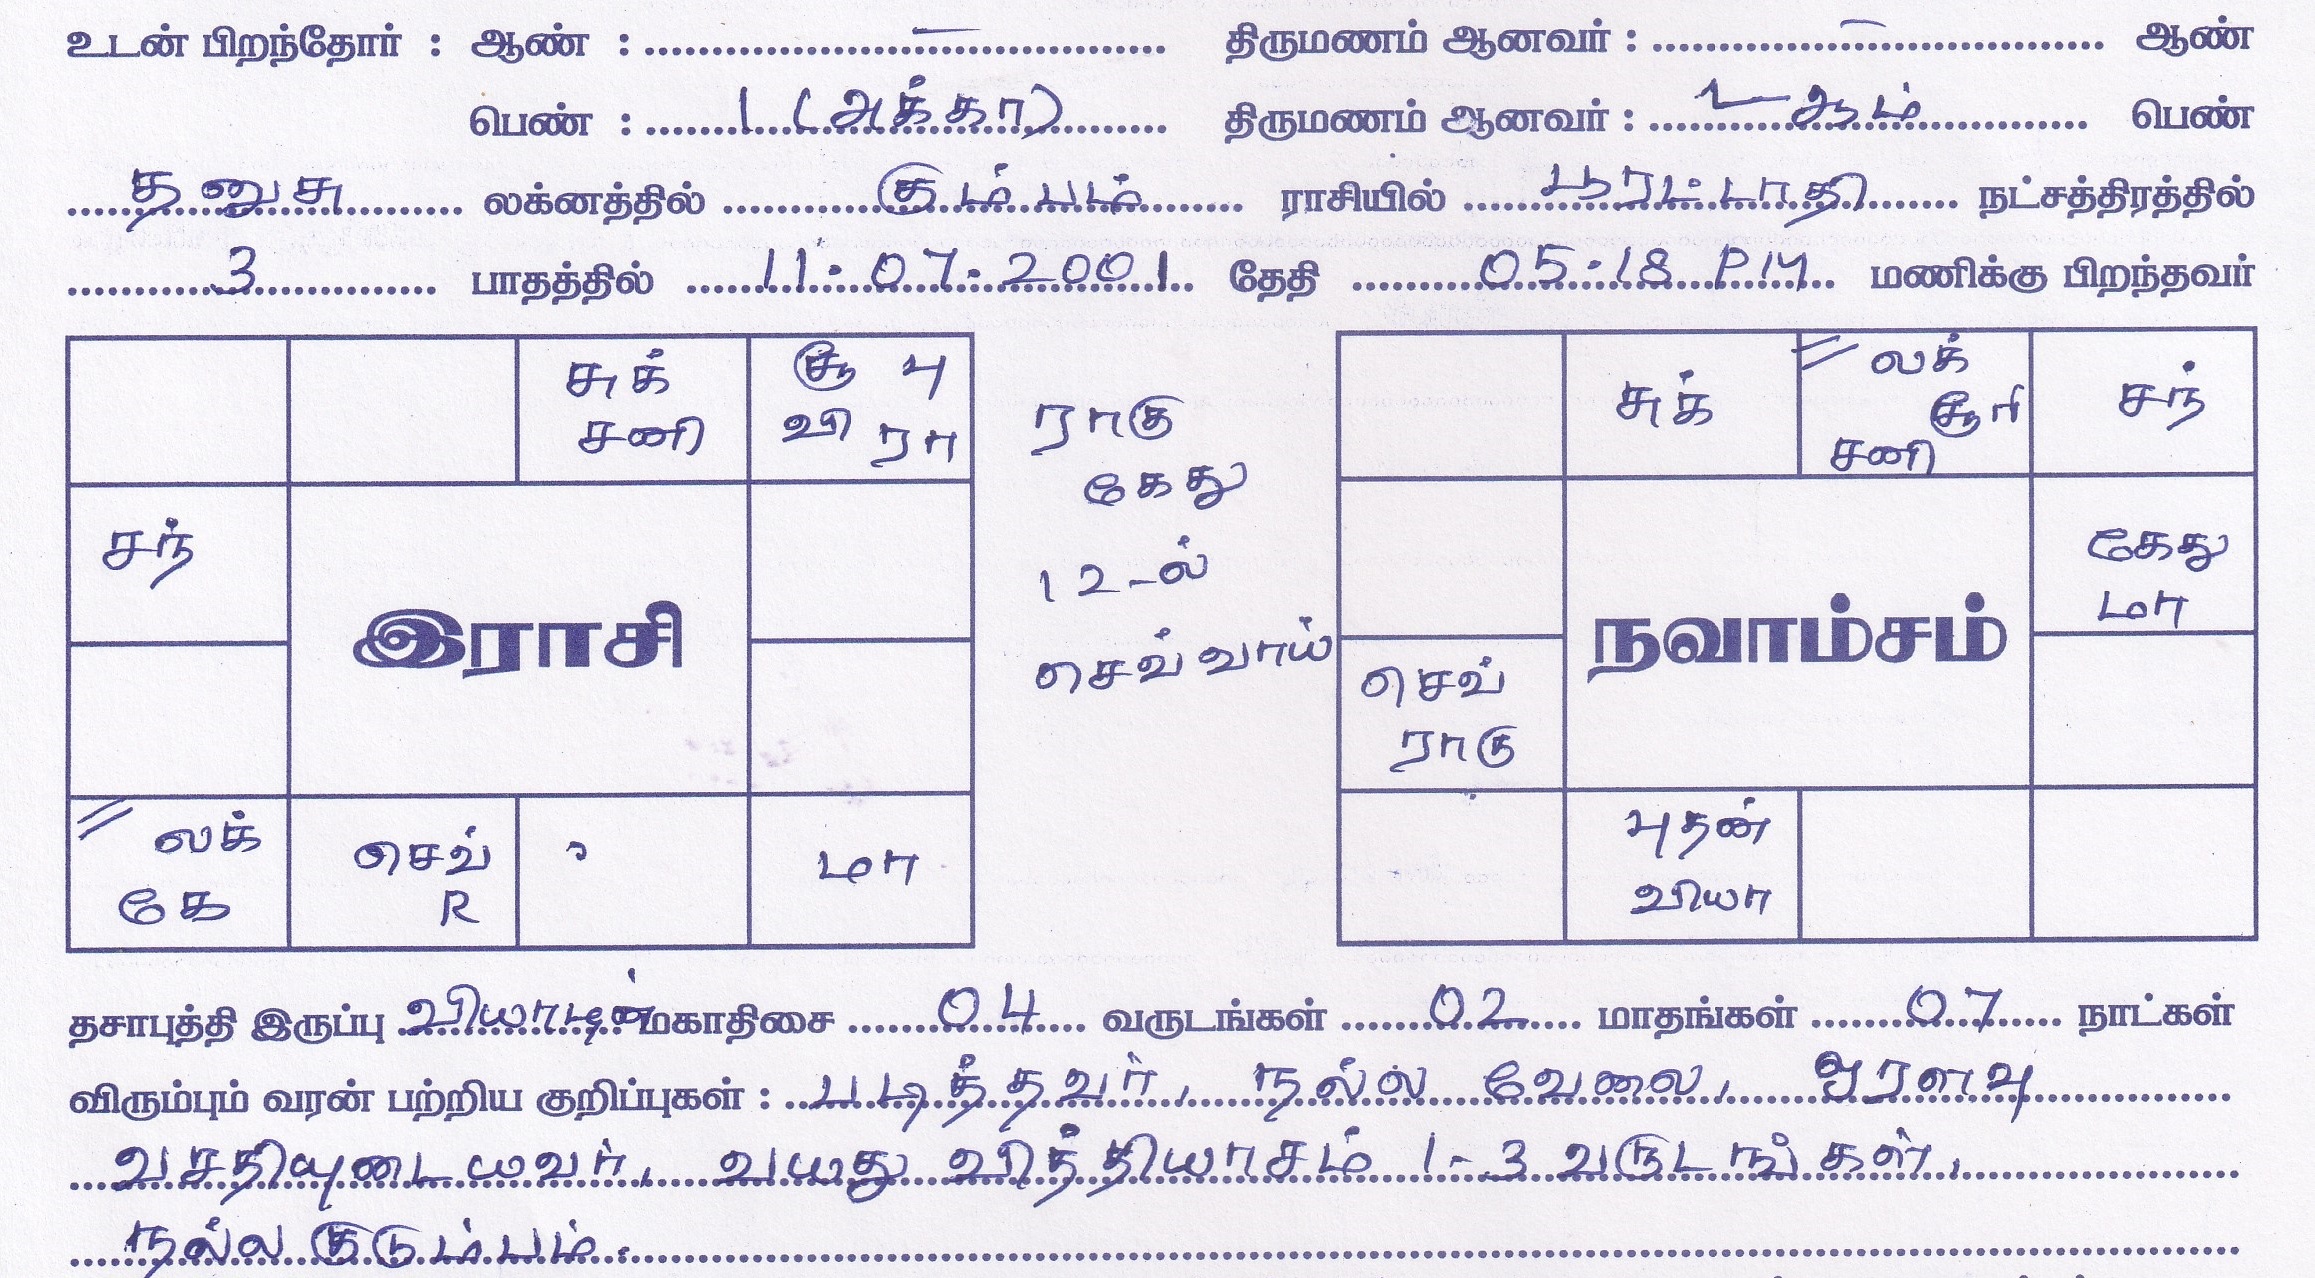 உடன் பிறந்தோர் : ஆண் : – திருமணம் ஆனவர் : – ஆண்
பெண் : 1 (அக்கா) திருமணம் ஆனவர் : ஆம் பெண்
தனுசு லக்னத்தில் கும்பம் ராசியில் பூரட்டாதி நட்சத்திரத்தில்
3 பாதத்தில் 11.07.2001 தேதி 05.18 PM மணிக்கு பிறந்தவர்
சுக்
சனி
சூ பு
வி ரா
சந்
இராசி
லக்
கே
செவ்
R
மா
ராகு
கேது
12-ல்
செவ்வாய்
சுக்
லக்
சூரி
சனி
சந்
கேது
மா
நவாம்சம்
செவ்
ராகு
புதன்
வியா
தசாபுத்தி இருப்பு வியாழன் மகாதிசை 04 வருடங்கள் 02 மாதங்கள் 07 நாட்கள்
விரும்பும் வரன் பற்றிய குறிப்புகள் : படித்தவர், நல்ல வேலை, ஓரளவு
வசதியுடையவர், வயது வித்தியாசம் 1-3 வருடங்கள்,
நல்ல குடும்பம்.